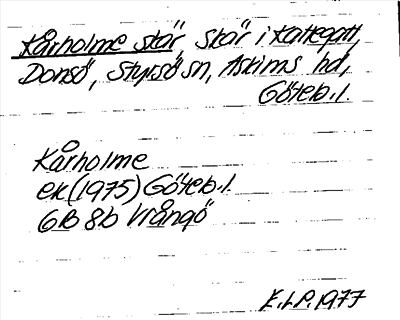 Kårholme skär, skär i Kattegatt,
Donsö, Styrsö sn, Askims hd,
Göteb. l.
Kårholme
ek (1975) Göteb. l.
6B 8b Vrångö
E.L.P. 1977